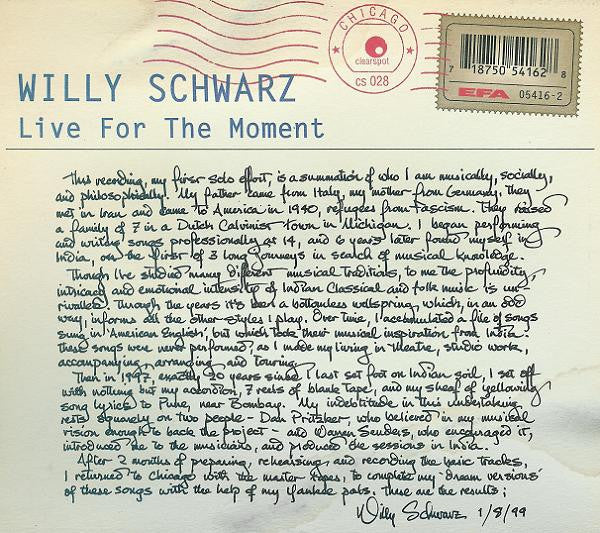 CHICAGO
clearspot
cs 028
7 18750 54162 8
EFA 05416-2
WILLY SCHWARZ
Live For The Moment
This recording, my first solo effort, is a summation of who I am musically, socially,
and philosophically. My father came from Italy, my mother from Germany. They
met in Iran and came to America in 1940, refugees from Fascism. They raised
a family of 7 in a Dutch Calvinist town in Michigan. I began performing
and writing songs professionally at 14, and 6 years later found myself in
India, on the first of 3 long journeys in search of musical knowledge.
Though I've studied many different musical traditions, to me the profundity,
intricacy and emotional intensity of Indian Classical and folk music is un-
rivalled. Through the years it's been a bottomless wellspring, which, in an odd
way, informs all the other styles I play. Over time, I accumulated a file of songs
sung in 'American English', but which took their musical inspiration from India.
These songs were never performed, as I made my living in theatre, studio work,
accompanying, arranging, and touring.
Then in 1997, exactly 20 years since I last set foot on Indian soil, I set off
with nothing but my accordion, 7 reels of blank tape, and my sheaf of yellowing
song lyrics to Pune, near Bombay. My indebtitude in this undertaking
rests squarely on two people - Dan Pritzker, who believed in my musical
vision enough to back the project - and Warren Senders, who encouraged it,
introduced me to the musicians, and produced the sessions in India.
After 2 months of preparing, rehearsing, and recording the basic tracks,
I returned to Chicago with the master tapes, to complete my 'dream versions'
of these songs with the help of my Yankee pals. These are the results;
Willy Schwarz 1/8/99